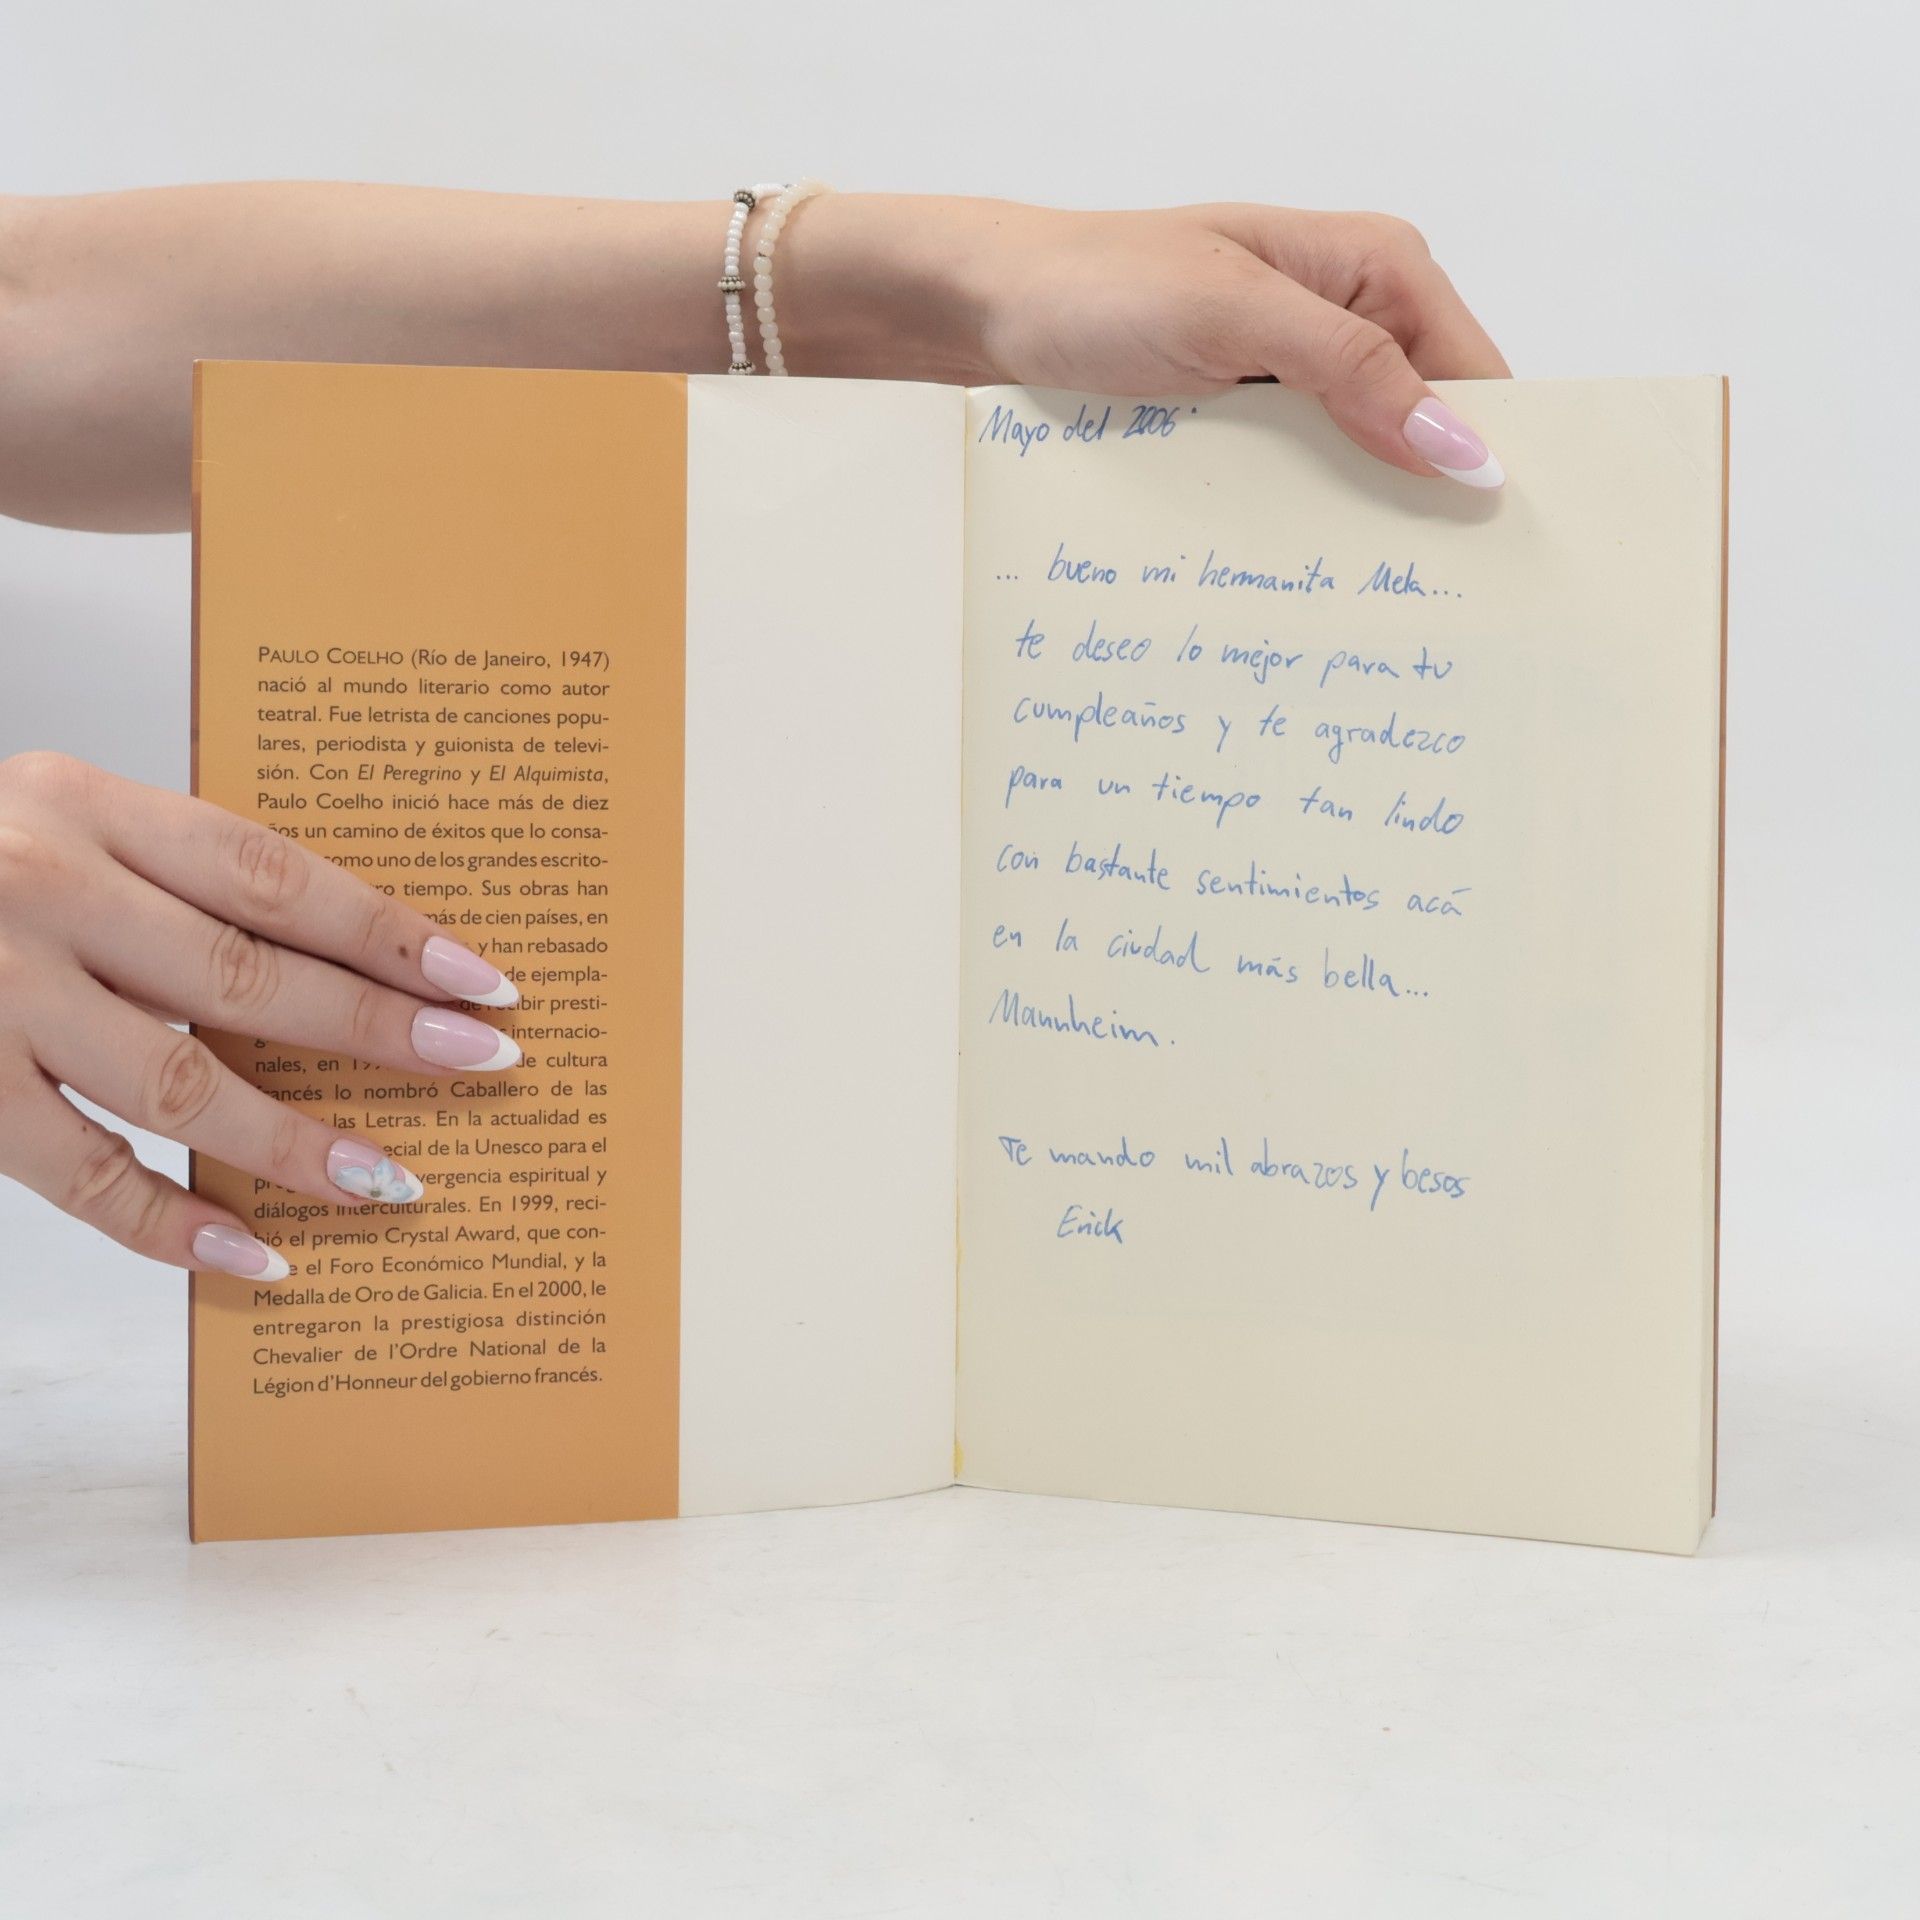 PAULO COELHO (Río de Janeiro, 1947)
nació al mundo literario como autor
teatral. Fue letrista de canciones popu-
lares, periodista y guionista de televi-
sión. Con El Peregrino y El Alquimista,
Paulo Coelho inició hace más de diez
un camino de éxitos que lo consa-
como uno de los grandes escrito-
tiempo. Sus obras han
más de cien países, en
y han rebasado
de ejempla-
presti-
internacio-
nales, en de cultura
francés lo nombró Caballero de las
las Letras. En la actualidad es
de la Unesco para el
espiritual y
diálogos interculturales. En 1999, reci-
bió el premio Crystal Award, que con-
el Foro Económico Mundial, y la
Medalla de Oro de Galicia. En el 2000, le
entregaron la prestigiosa distinción
Chevalier de l'Ordre National de la
Légion d'Honneur del gobierno francés.
Mayo del 2006
... bueno mi hermanita Mela...
te deseo lo mejor para tu
cumpleaños y te agradezco
para un tiempo tan lindo
con bastante sentimientos acá
en la ciudad más bella...
Mannheim.
Te mando mil abrazos y besos
Erick